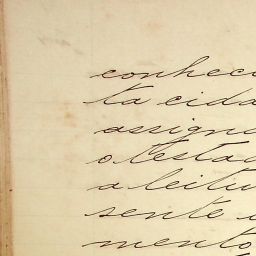 conheci
ta cida
assigna
o testad
a leitu
sente
mento